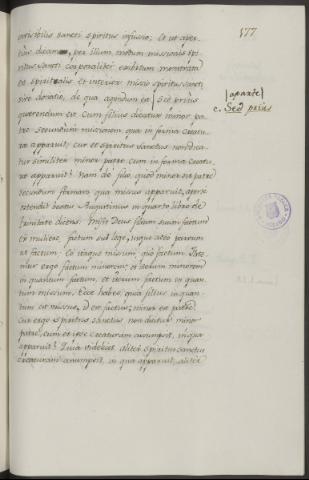 177
visibilis sancti spiritus infusio; et ut aper-
tius dicam, per illum modum missionis spi-
ritus sancti corporaliter exhibitum monstrata
est spiritalis et interior missio spiritus sancti,
sive donatio, de qua agendum est. Sed prius
quærendum est Cum filius dicatur minor pa-
tre secundum missionem qua in forma creatu-
ræ apparuit; cur et spiritus sanctus non dica-
tur similiter minor patre cum in forma creatu-
ræ apparuit? Nam de filio, quod minor sit patre
secundum formam qua missus apparuit, aperte
ostendit beatus Augustinus in quarto libro de
trinitate dicens: Misit Deus filium suum factum
ex muliere, factum sub lege, usque adeo parvum
ut factum; eo itaque missum, quo factum. Fate-
mur ergo factum minorem; et in tantum minorem
in quantum factum, et in tantum factum in quan-
tum missum. Ecce habes, quia filius in quan-
tum est missus, id est factus, minor est patre.
Cur ergo spiritus sanctus non dicitur minor
patre, cum et ipse creaturam assumpserit, in qua
apparuit? Quia videlicet aliter spiritus sanctus
creaturam assumpsit, in qua apparuit, aliter
[aparte]
c. Sed prius